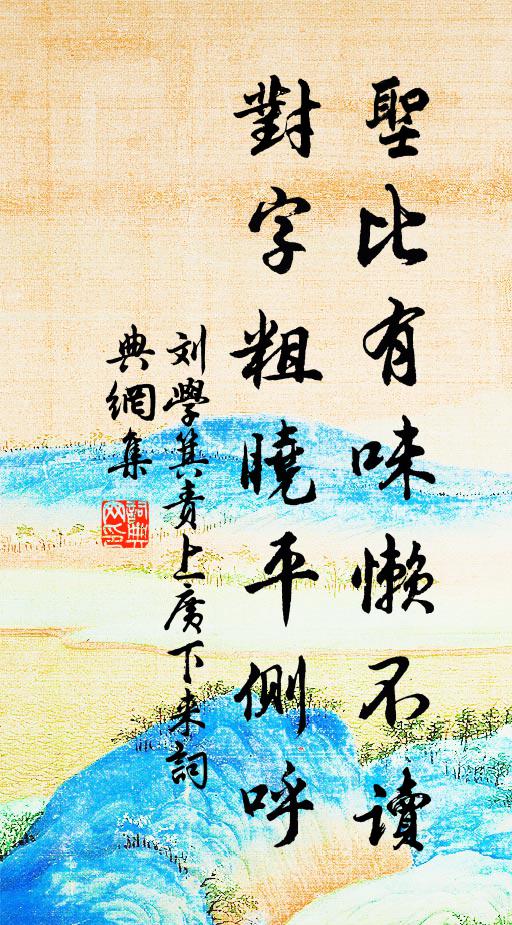 聖比有味懶不讀
對字粗曉平側呼
刘學箕責上廣下来詞
典網集
詞典